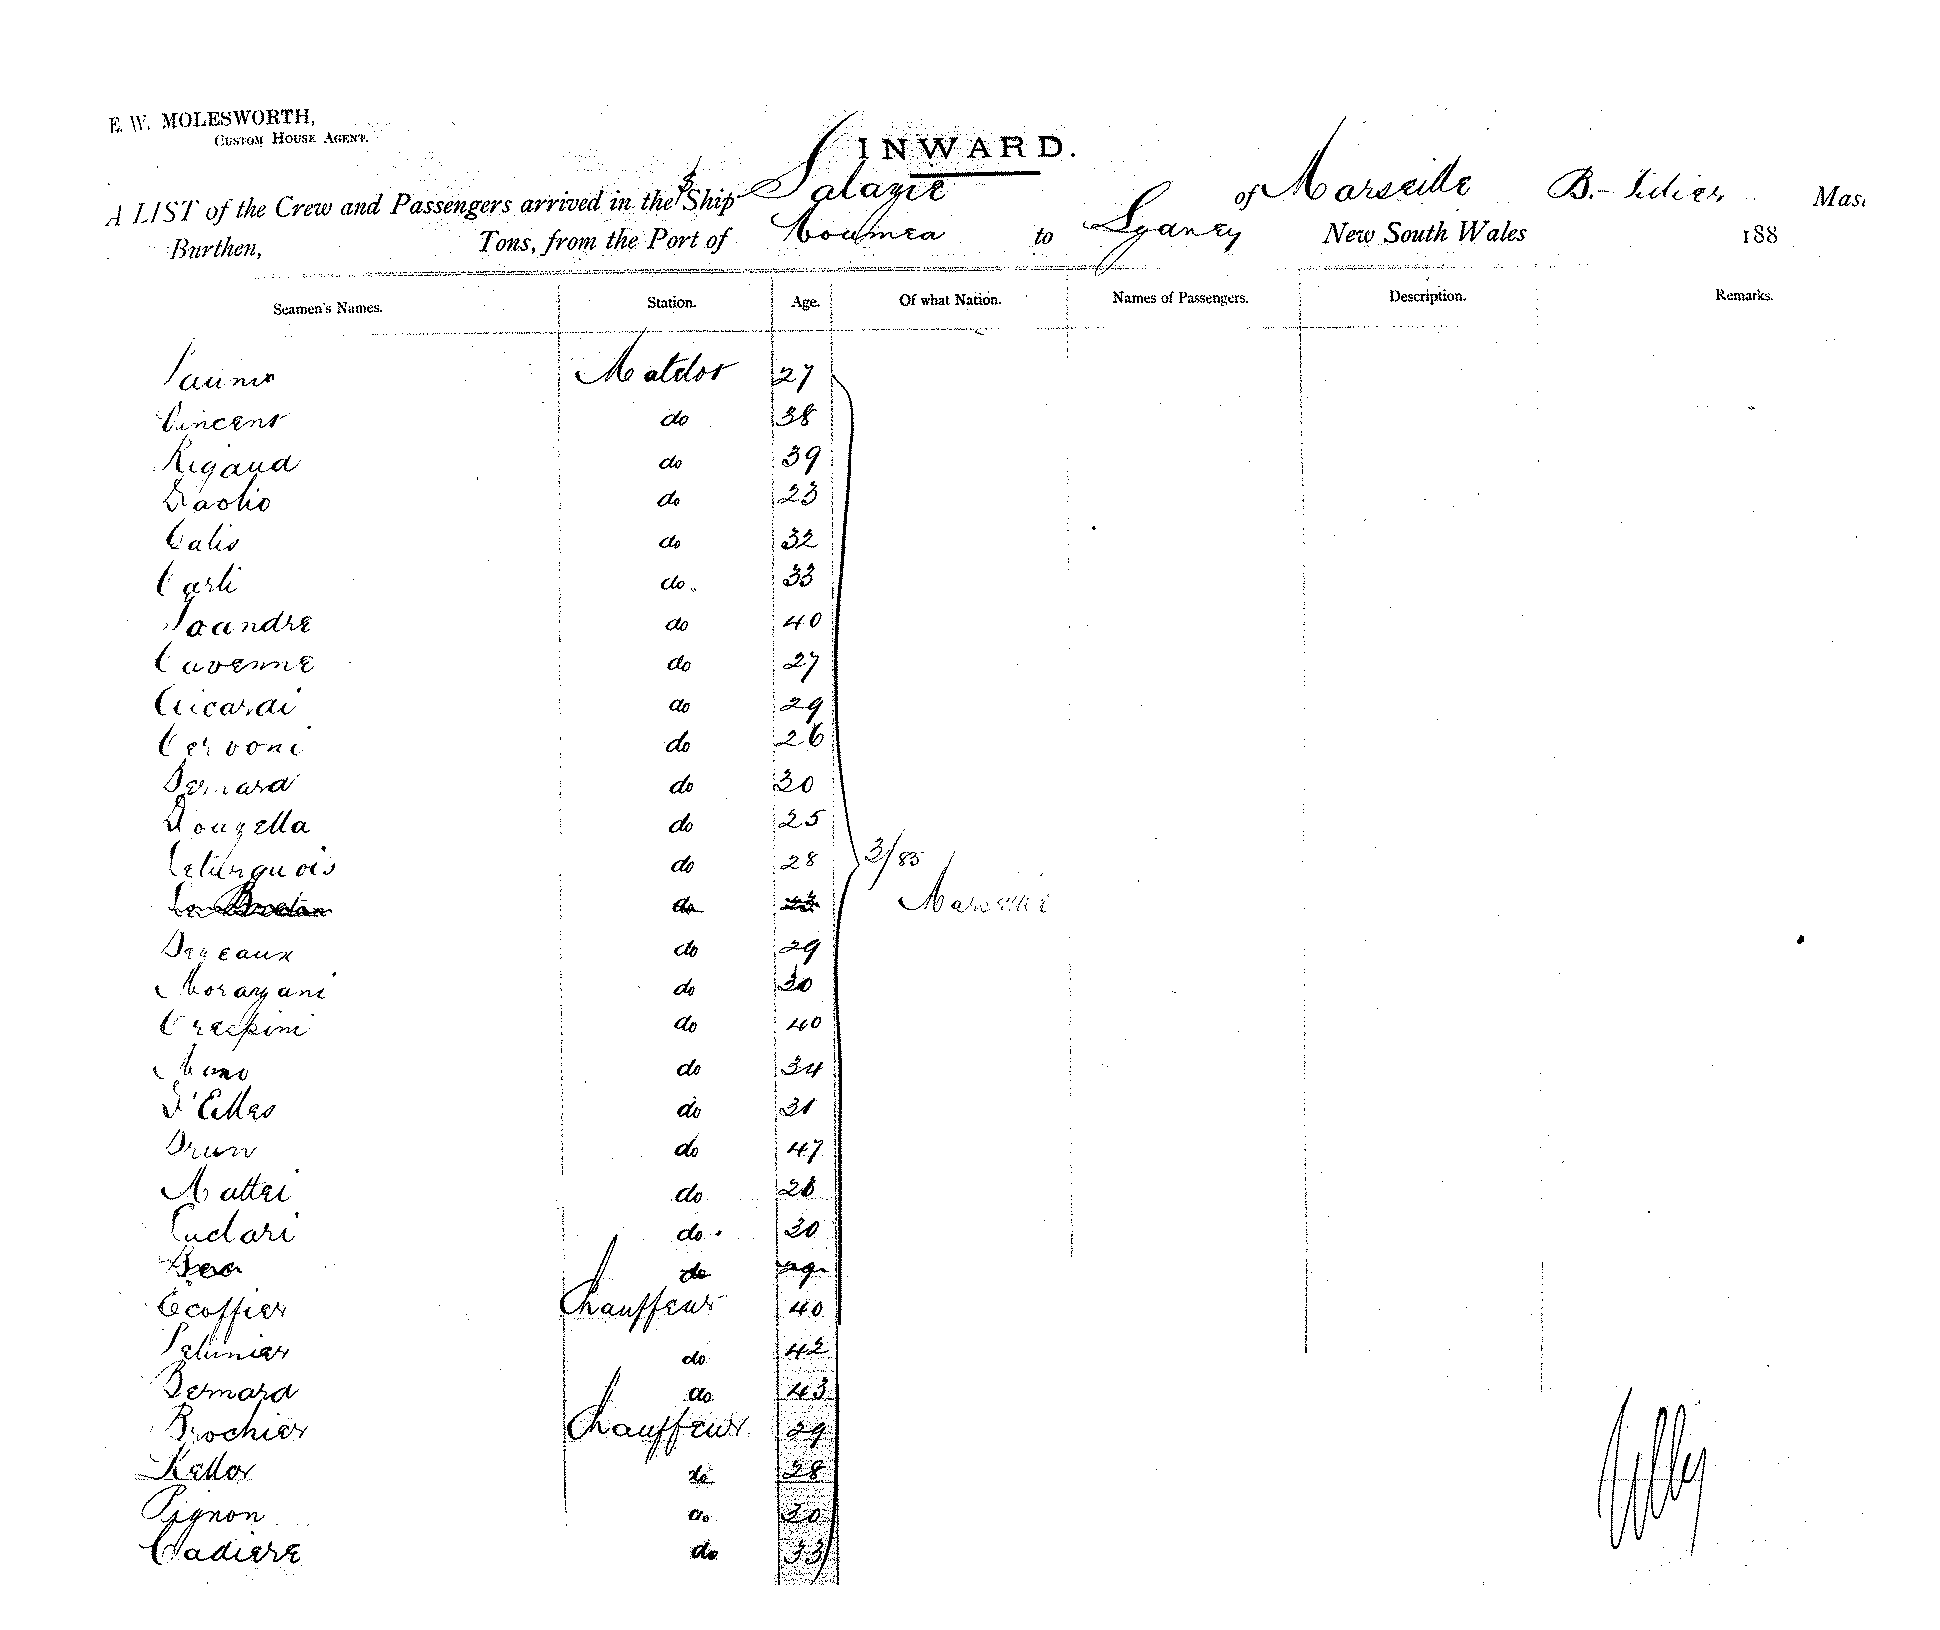 E. W. MOLESWORTH,
CUSTOM HOUSE AGENT.
INWARD.
A LIST of the Crew and Passengers arrived in the S Ship Salazie of Marseille B.- Mas
Burthen, Tons, from the Port of Noumea to Sydney New South Wales 188
Seamen's Names. Station. Age. Of what Nation. Names of Passengers. Description. Remarks.
Matelot 27
Vincent do 38
Rigaud do 39
Paolio do 23
Calis do 32
Carli do. 33
do 40
Cavenne do 27
Aicardi do 29
Cervoni do 26
Bernard do 30
Donzella do 25
Leturquois do 28 3/85
Le Breton do Marseille
do 29
Morazzani do 30
Crespini do 40
do 34
do 31
Brun do 47
Mattei do 28
do. 30
do
Ecoffier Chauffeur 40
do 42
Bernard do 43
Brochier Chauffeur 29
Keller do 28
Pignon do 30
Cadiere do 33